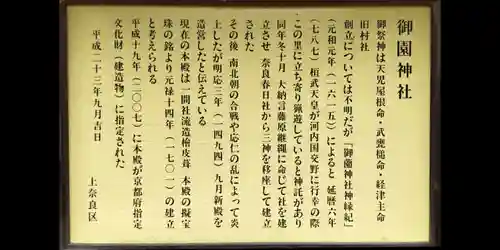 御園神社
御祭神は天児屋根命・武甕槌命・経津主命
旧村社
創立については不明だが「御薗神社神縁紀」
(元和元年(一六一五)によると 延暦六年
(七八七)桓武天皇が河内国交野に行幸の際
この里に立ち寄り猟遊していると神託があり
同年冬十月 大納言藤原継縄に命じて社を建
立させ 奈良春日社から三神を移座して建立
された
その後 南北朝の合戦や応仁の乱によって炎
上したが明応三年(一四九四)九月新殿を
造営したと伝えている
現在の本殿は一間社流造桧皮葺 本殿の擬宝
珠の銘より元禄十四年(一七〇一)の建立
と考えられる
平成十九年(二〇〇七)に本殿が京都府指定
文化財(建造物)に指定された
平成二十三年九月吉日
上奈良区